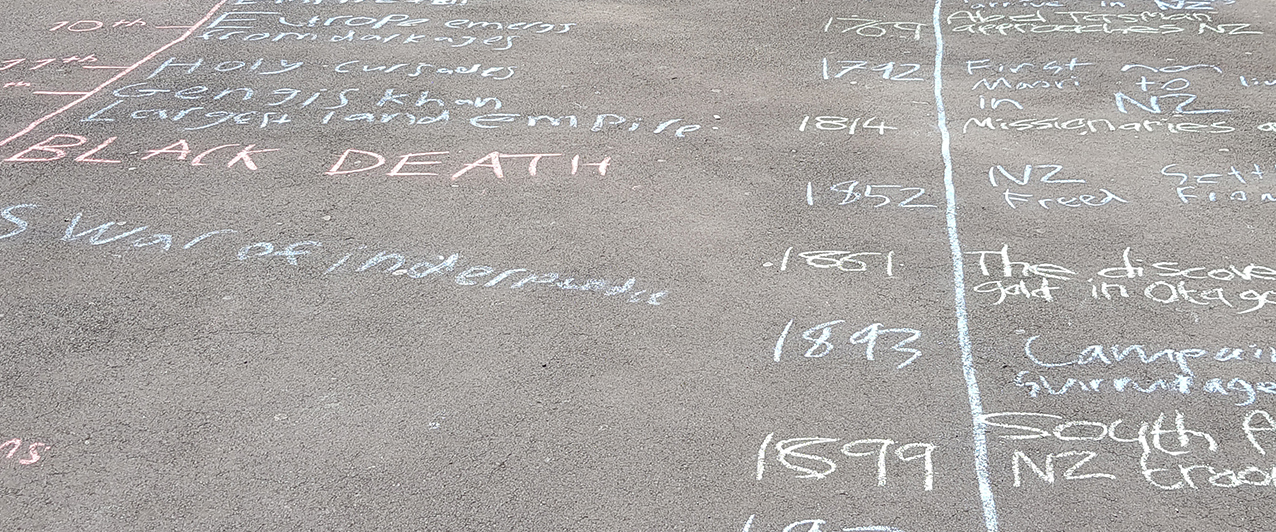 10th
Europe emergs
from dark ages
11th
Holy Cursades
th
Gengis Khan
Largest land empire
BLACK DEATH
S War of
ns
arrive in NZ
1769
Abel Tasman
approaches NZ
1792
First non
Maori to liv
in NZ
1814
Missionaries a
1852
NZ Sett
Freed From
1861
The discove
gold in Otago
1893
Campain
1899
South A
NZ troo